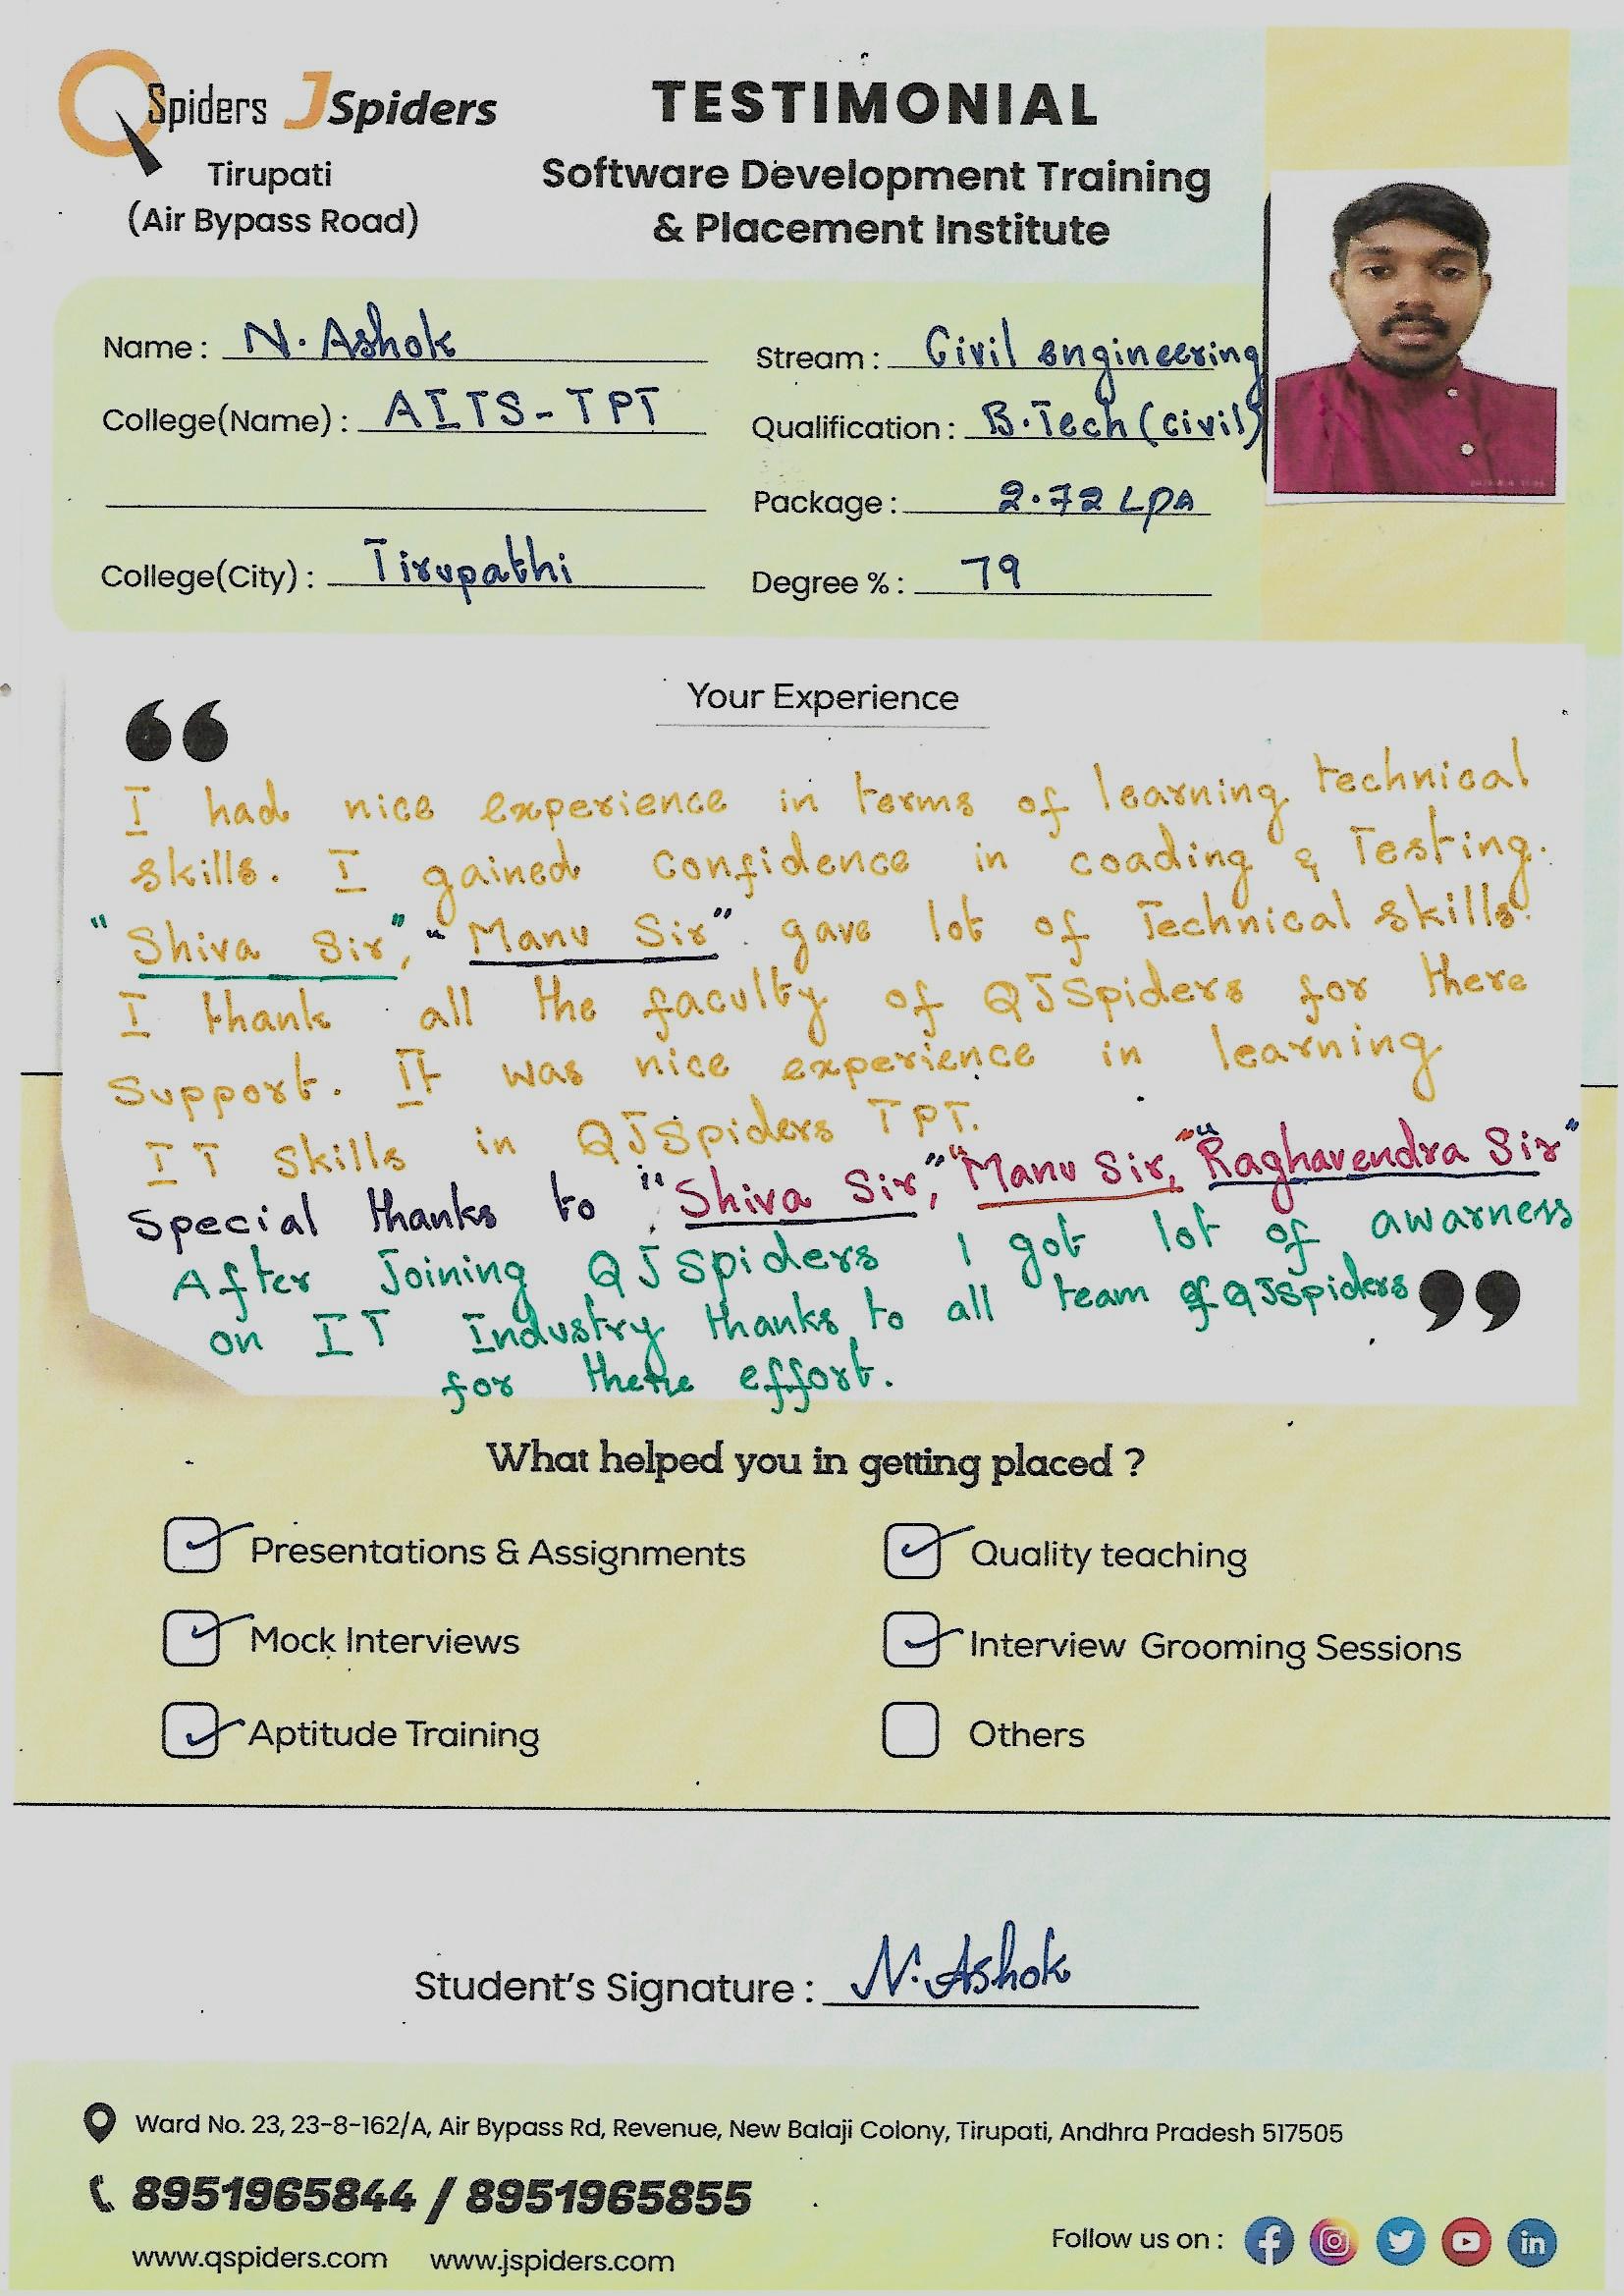 QSpiders JSpiders
Tirupati
(Air Bypass Road)
TESTIMONIAL
Software Development Training
& Placement Institute
Name : N. Ashok
College(Name) : AITS-TPT
College(City) : Tirupathi
Stream : Civil engineering
Qualification : B.Tech (civil)
Package : 2.72 LPA
Degree % : 79
Your Experience
“
I had nice experience in terms of learning technical
skills. I gained confidence in coading & Testing.
"Shiva Sir", "Manu Sir". gave lot of Technical skills.
I thank all the faculty of QJSpiders for there
Support. It was nice experience in learning
IT Skills in QJSpiders TPT.
Special thanks to "Shiva Sir," "Manu Sir," "Raghavendra Sir"
After Joining QJSpiders I got lot of awarness
on IT Industry thanks to all team of QJSpiders ”
for effort.
What helped you in getting placed ?
Presentations & Assignments
Quality teaching
Mock Interviews
Interview Grooming Sessions
Aptitude Training
Others
Student's Signature : N. Ashok
Ward No. 23, 23-8-162/A, Air Bypass Rd, Revenue, New Balaji Colony, Tirupati, Andhra Pradesh 517505
8951965844 / 8951965855
www.qspiders.com www.jspiders.com
Follow us on :